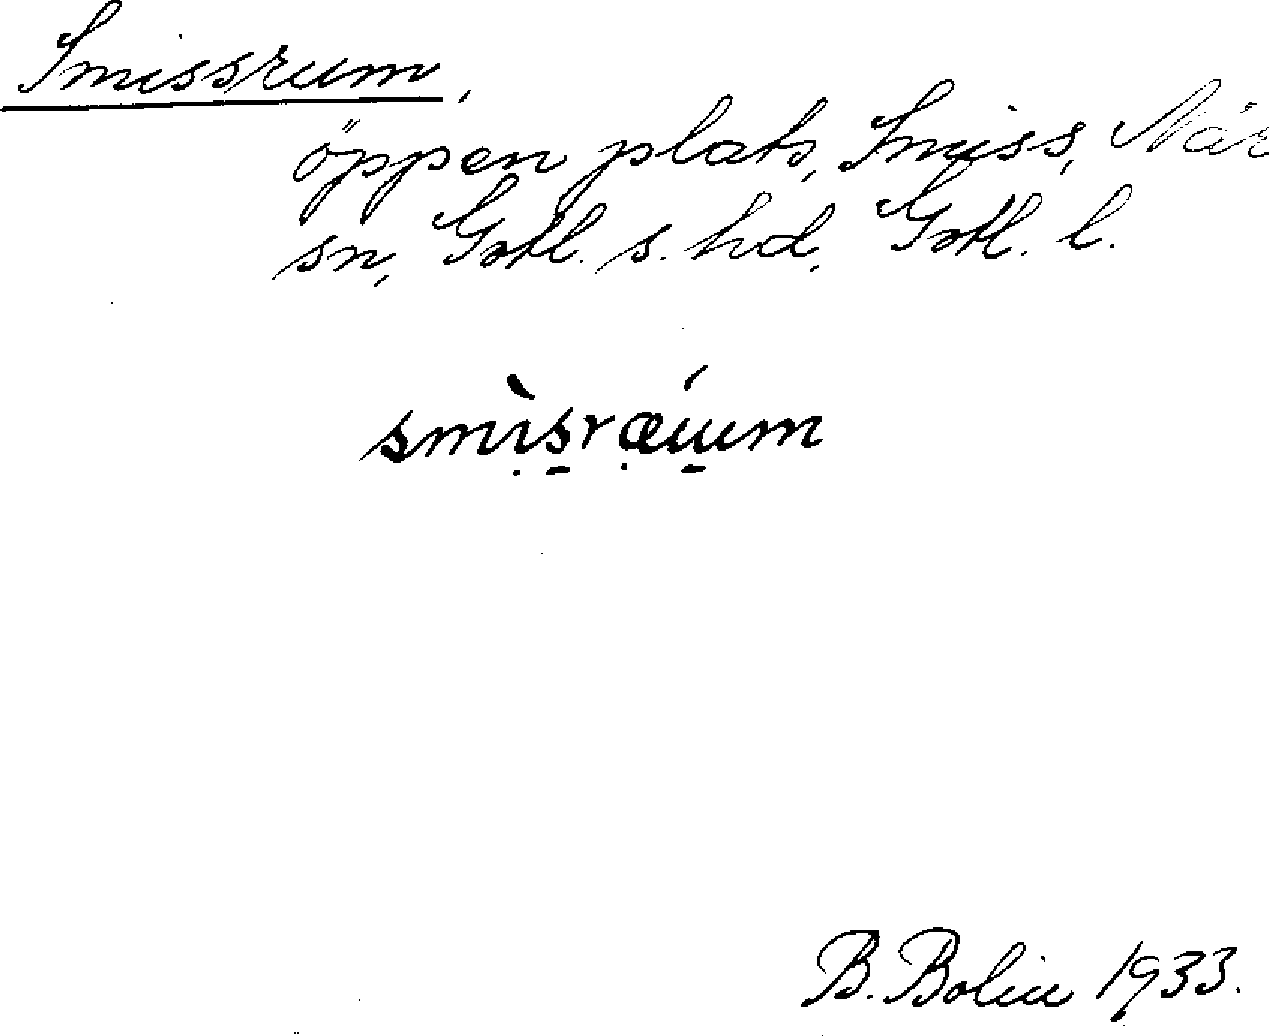 Smissrum,
öppen plats, Smiss, När
sn, Gotl. s. hd, Gotl. l.
smìsræ̣úum
B. Bolin 1933.